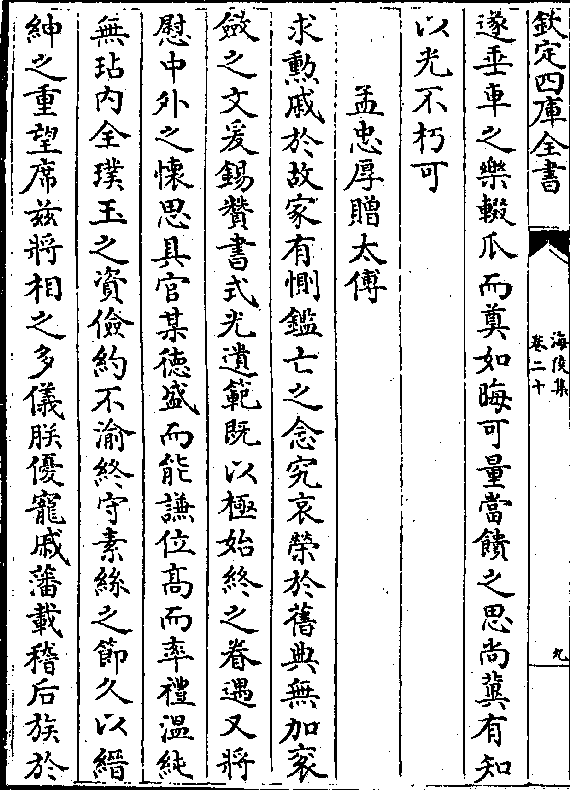 欽定四庫全書
海陵集
卷二十
九
遂垂車之樂輟瓜而奠如晦可量當饋之思尚冀有知
以光不朽可
孟忠厚贈太傅
求勲戚於故家有惻鑑亡之念究哀榮於舊典無加衮
斂之文爰錫贊書式光遺範既以極始終之眷遇又將
慰中外之懷思具官某徳盛而能謙位髙而率禮温純
無玷内全璞玉之資儉約不渝終守素絲之節久以縉
紳之重望席兹將相之多儀朕優寵戚藩載稽后族於